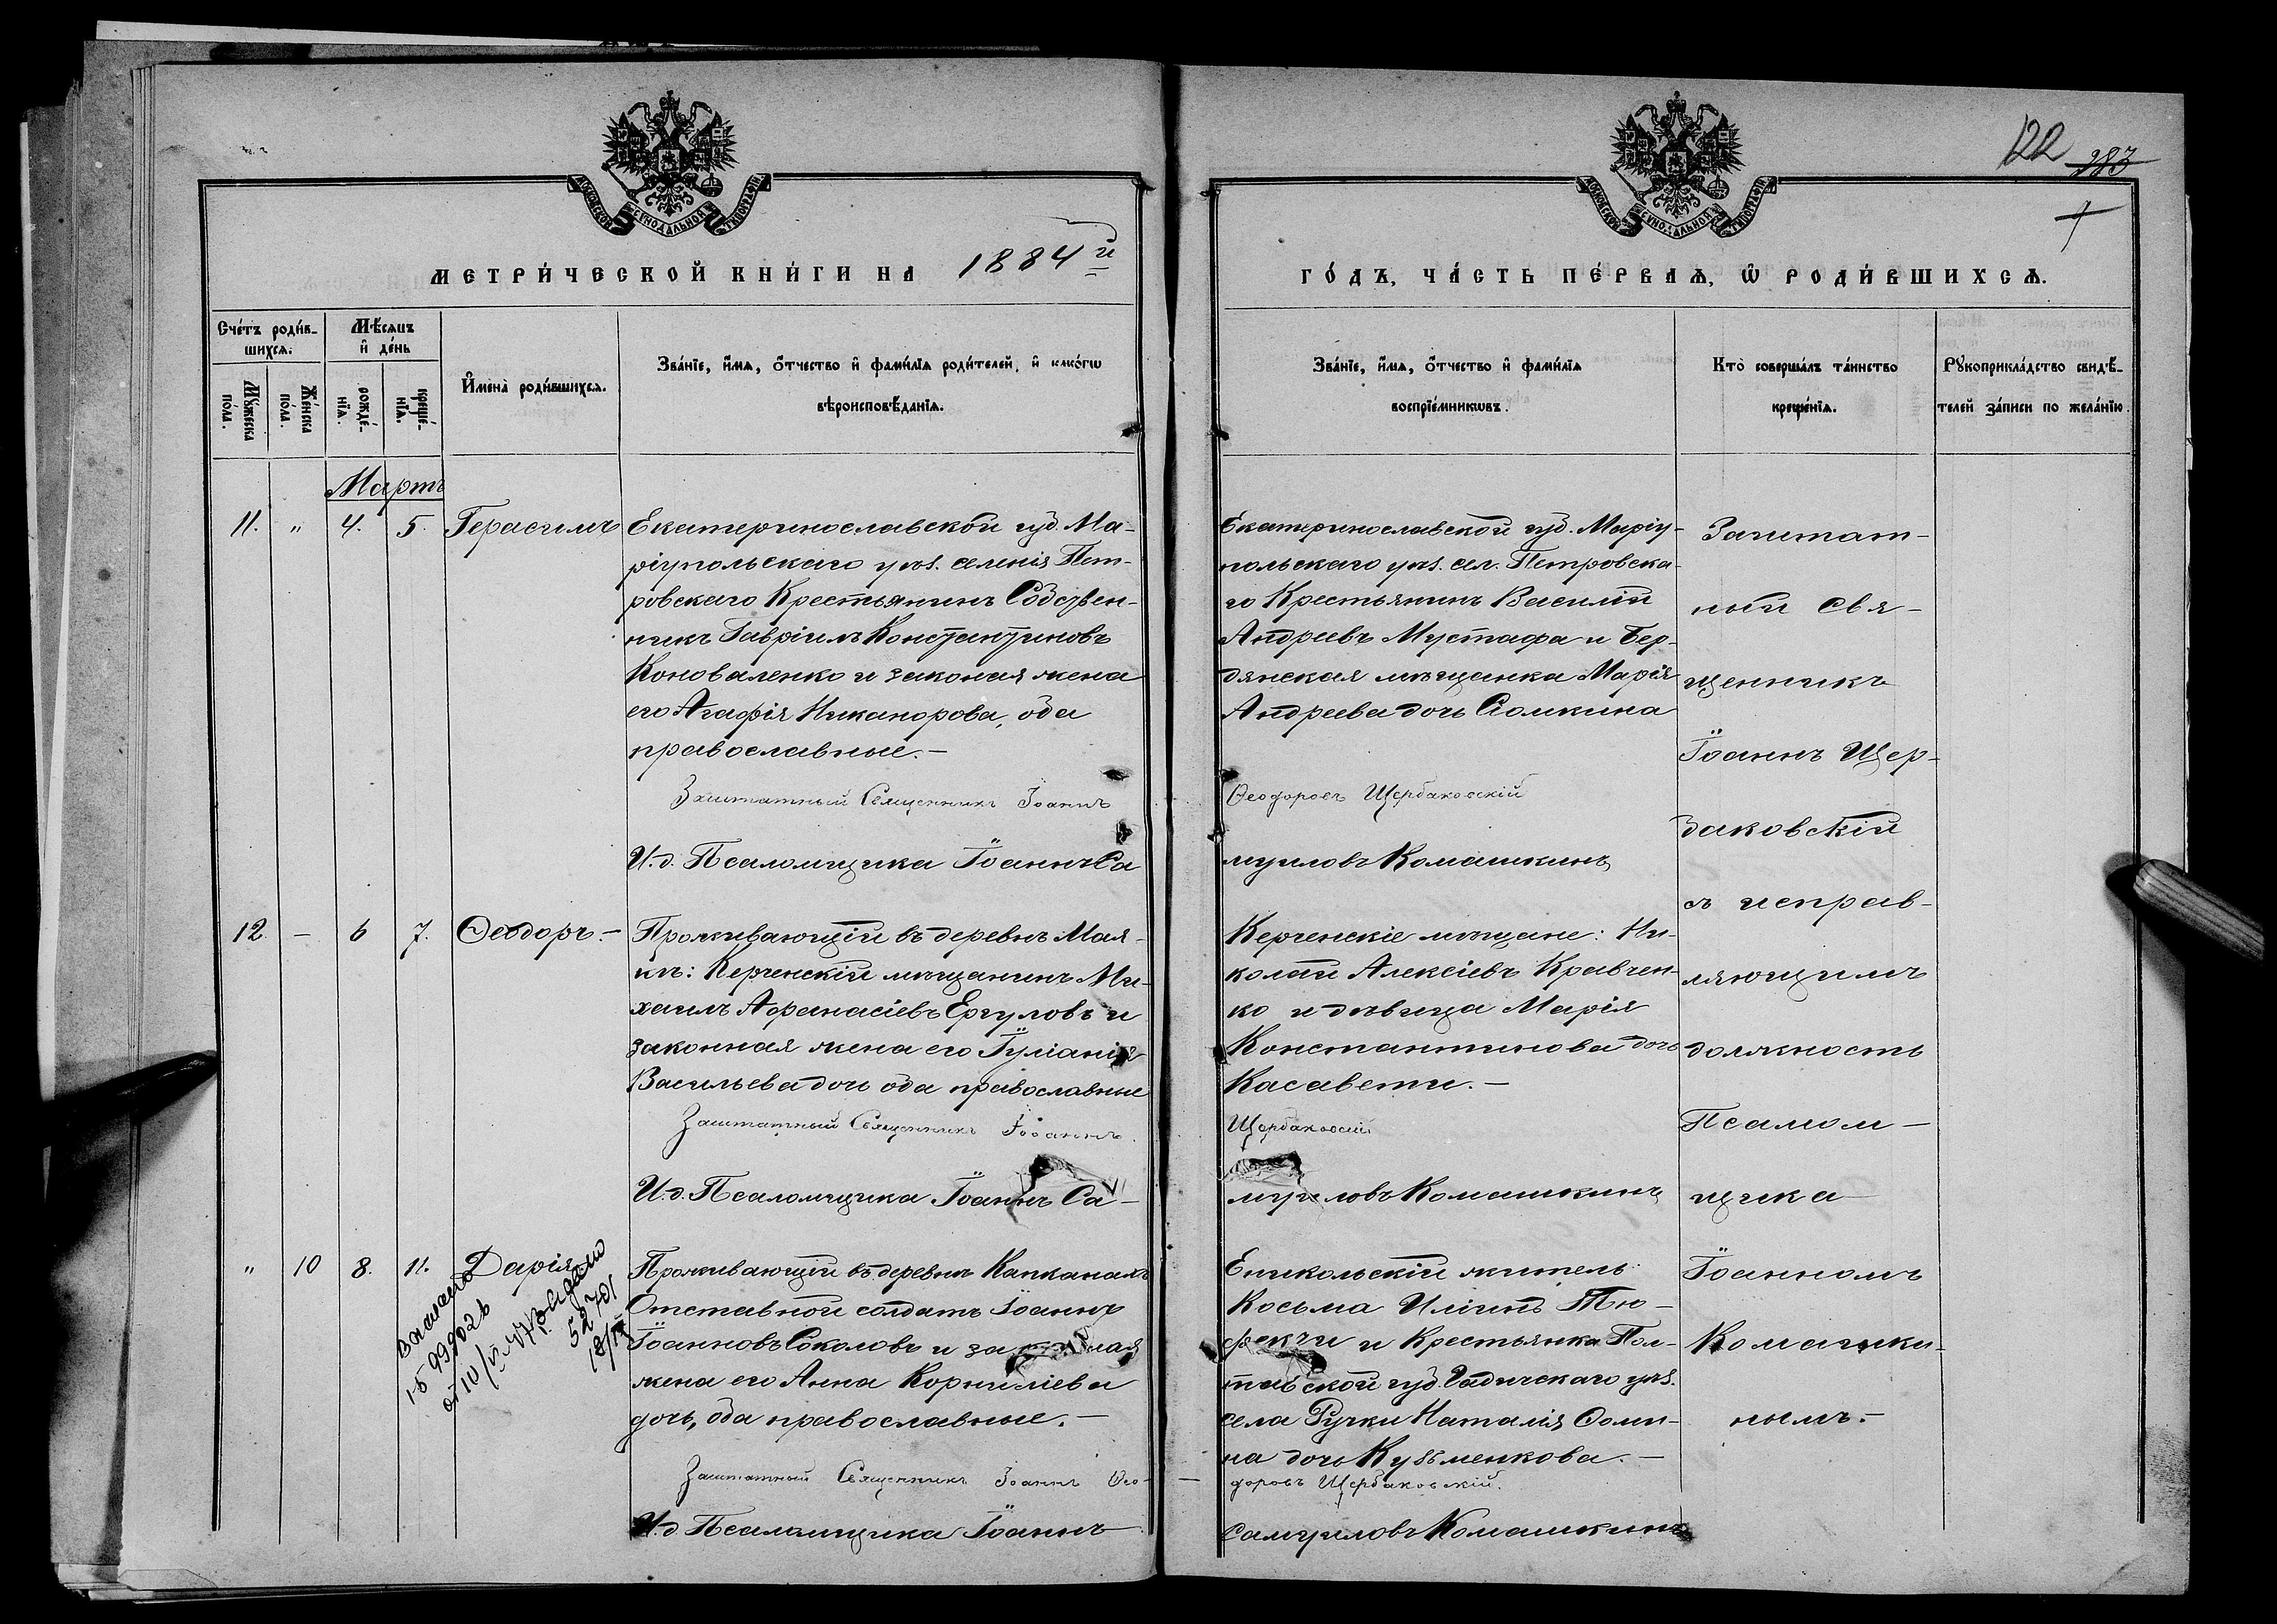 122 983
МОСКОВСКОЙ СѴНОДАЛЬНОЙ ТИПОГРАФІИ
МОСКОВСКОЙ СѴНОДАЛЬНОЙ ТИПОГРАФІИ
МЕТРИ́ЧЕСКОЙ КНИ́ГИ НА 1884 й
ГО́ДЪ, ЧА́СТЬ ПЕ́РВАѦ, Ѽ РОДИ́ВШИХСѦ.
Сче́тъ роди́в-
шихсѧ.
Мꙋ́жеска
по́ла.
Же́нска
по́ла.
Мѣ́сѧцъ
и҆ де́нь
рожде́-
нїѧ.
креще́-
нїѧ.
И҆мена̀ роди́вшихсѧ.
Зва́нїе, и҆́мѧ, ѻ҆́тчество и҆ фами́лїѧ роди́телей, и҆ како́гѡ
вѣроисповѣ́данїѧ.
Зва́нїе, и҆́мѧ, ѻ҆́тчество и҆ фами́лїѧ
воспрїе́мникѡвъ.
Кто̀ соверша́лъ та́инство
креще́нїѧ.
Рꙋкоприкла́дство свидѣ́-
телей за́писи по жела́нїю.
Мартъ
11. " 4. 5. Герасимъ
Екатеринославской губ. Ма-
ріупольскаго уѣз. селенія Пет-
ровскаго Крестьянинъ Собствен-
никъ Гавріилъ Константиновъ
Коноваленко и законая жена
его Агафія Никанорова, оба
православные.-
Заштатный Священникъ Іоаннъ
И.д. Псаломщика Іоаннъ Са
Екатеринославской губ. Маріу-
польскаго уѣз. сел. Петровска-
го Крестьянинъ Василій
Андреевъ Мустафа и Бер-
дянская мѣщанка Марія
Андреева дочь Сомкина
Ѳеодоровъ Щербаковскій
муиловъ Комашкинъ
12. - 6 7. Ѳеодоръ.-
Проживающій въ деревнѣ Мая-
кѣ: Керченскій мѣщанинъ Ми-
хаилъ Афанасіевъ Ергуловъ и
законная жена его Іуліанія
Васильева дочь оба православные
Заштатный Священникъ Іоаннъ
И.д. Псаломщика Іоаннъ Са-
Керченскіе мѣщане: Ни-
колай Алексіевъ Кравчен-
ко и дѣвица Марія
Константинова дочь
Касавети.-
Щербаковскій
муиловъ Комашкинъ
" 10 8. 11. Дарія
15 99902
5270
Проживающій въ деревнѣ Капканахъ
Отставной солдатъ Іоаннъ
Іоанновъ Соколовъ и законная
жена его Анна Корниліева
дочь, оба православные.-
Заштатный Священникъ Іоаннъ Ѳео-
И.д. Псаломщика Іоаннъ
Еникольскій житель
Косьма Иліинъ Тю-
фекчи и Крестьянка Пол-
тавской губ. Гадичскаго уѣз.
села Ручки Наталія Фоми-
на дочь Кузьменкова.-
доровъ Щербаковскій.
Самуиловъ Комашкинъ
Заштат-
ный Свя-
щенникъ
Іоаннъ Щер-
баковскій
съ исправ-
ляющимъ
должность
Псалом-
щика
Іоанномъ
Комашки-
нымъ.-